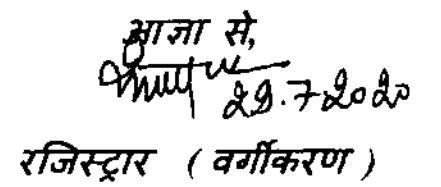 आज्ञा से,
29.7.2020
रजिस्ट्रार (वर्गीकरण)